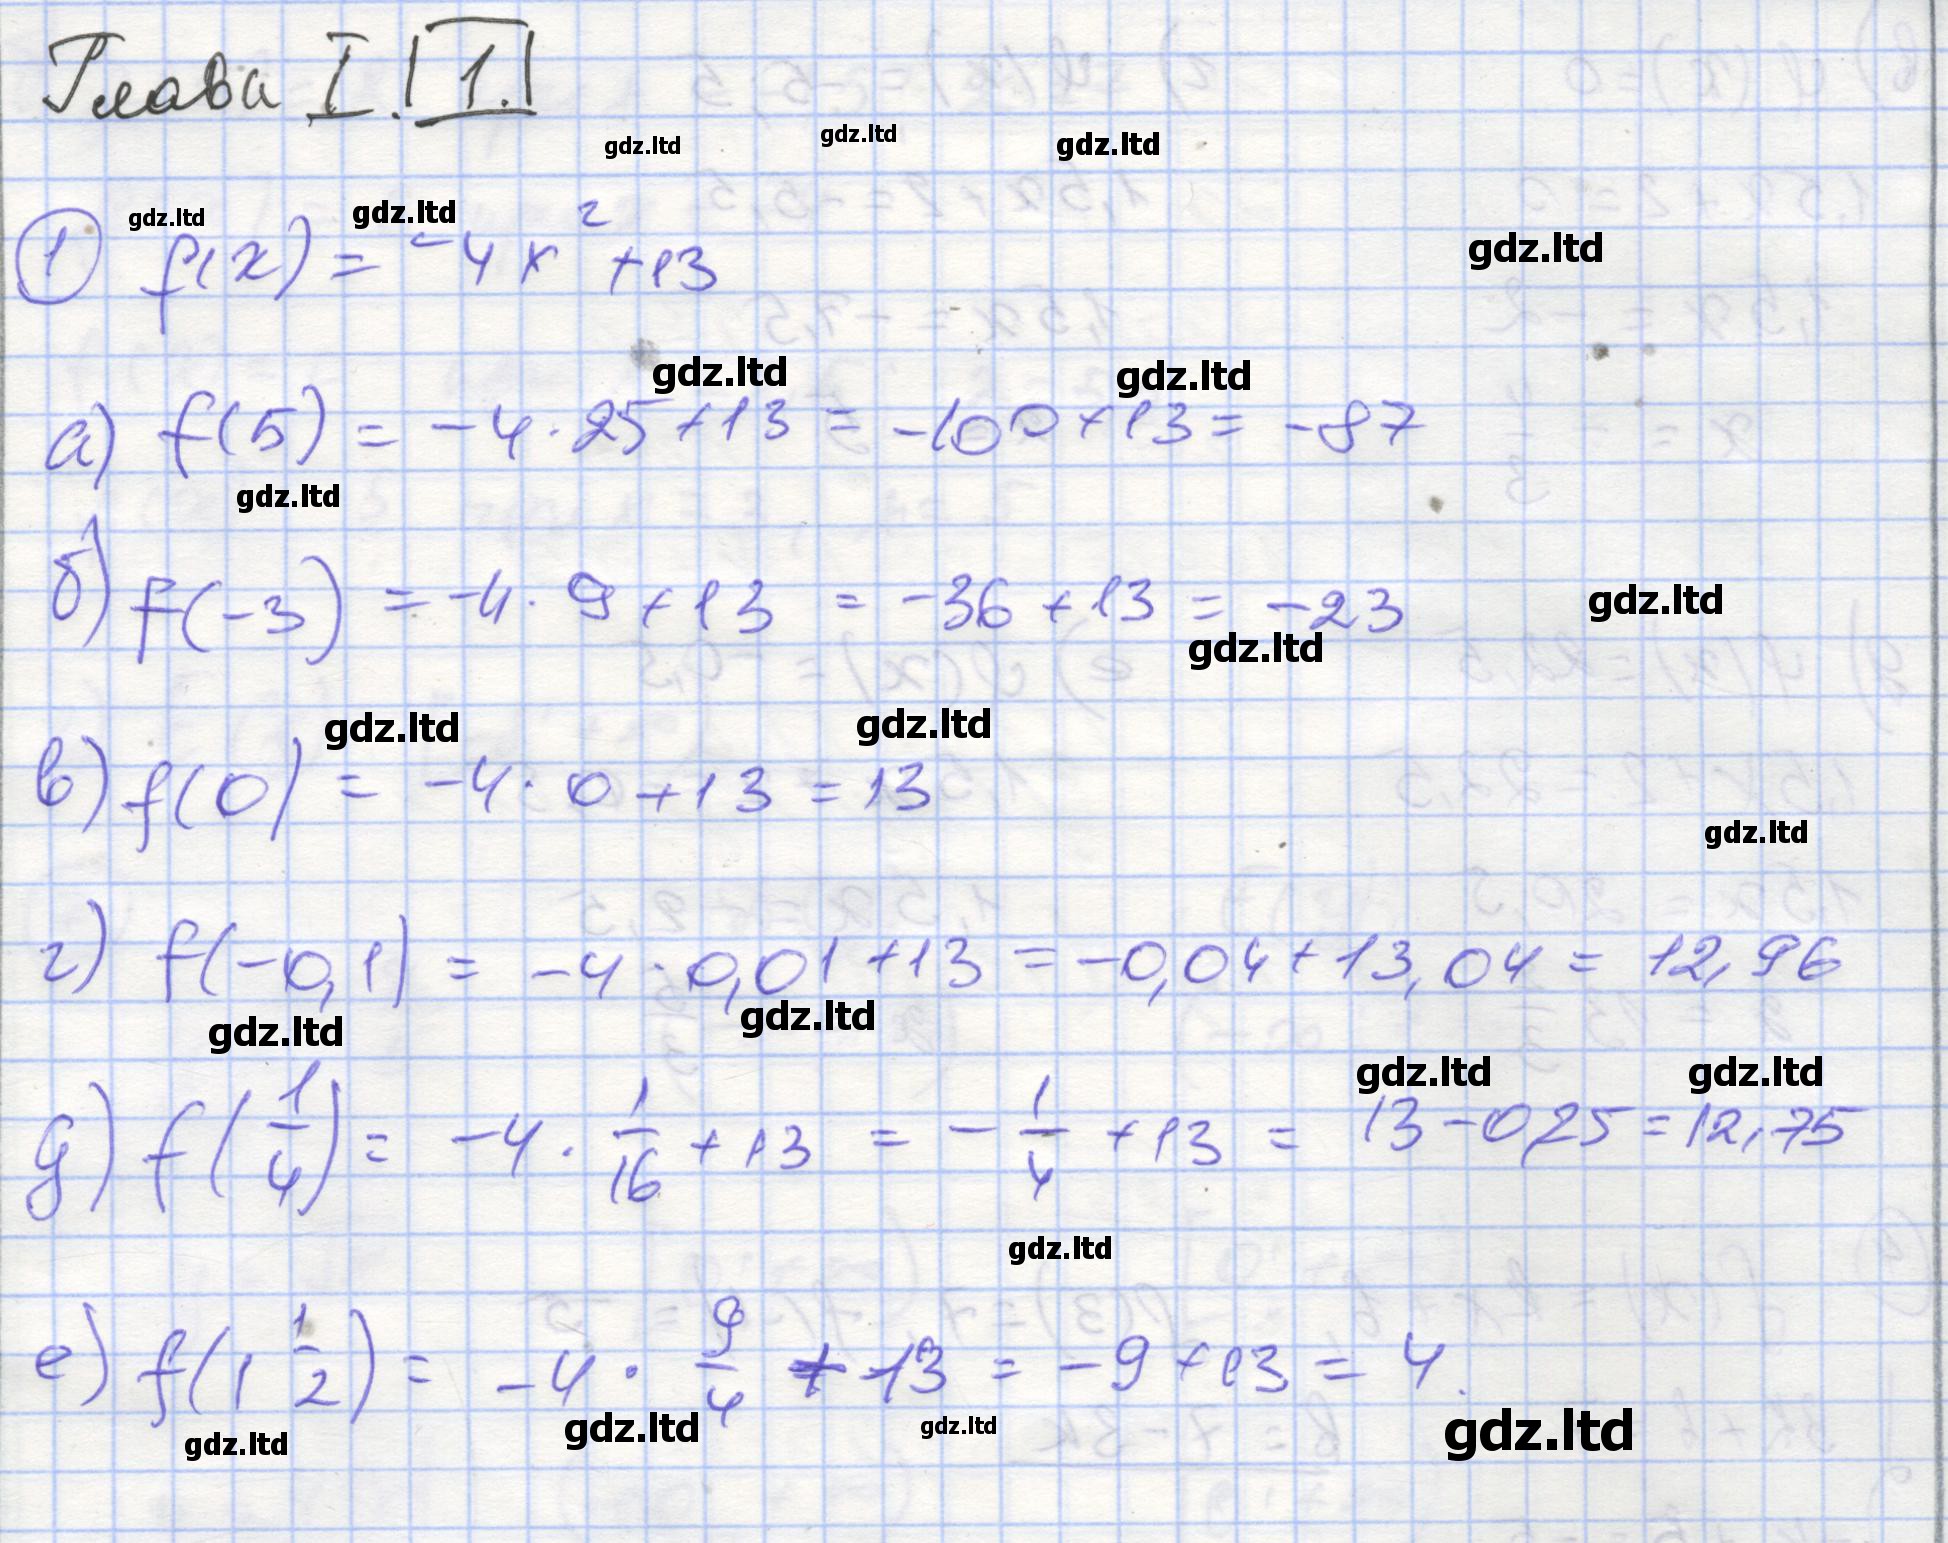 Глава I. 1.
gdz.ltd gdz.ltd gdz.ltd
gdz.ltd gdz.ltd gdz.ltd
1 f(x) = -4x² +13
gdz.ltd gdz.ltd
а) f(5) = -4·25+13 = -100+13 = -87
gdz.ltd
б) f(-3) = -4·9+13 = -36+13 = -23
gdz.ltd gdz.ltd
gdz.ltd gdz.ltd
в) f(0) = -4·0+13 = 13
gdz.ltd
г) f(-0,1) = -4·0,01+13 = -0,04+13,04 = 12,96
gdz.ltd gdz.ltd
gdz.ltd gdz.ltd
д) f(1/4) = -4·1/16+13 = -1/4+13 = 13-0,25=12,75
gdz.ltd
е) f(1 1/2) = -4·9/4+13 = -9+13 = 4.
gdz.ltd gdz.ltd gdz.ltd gdz.ltd